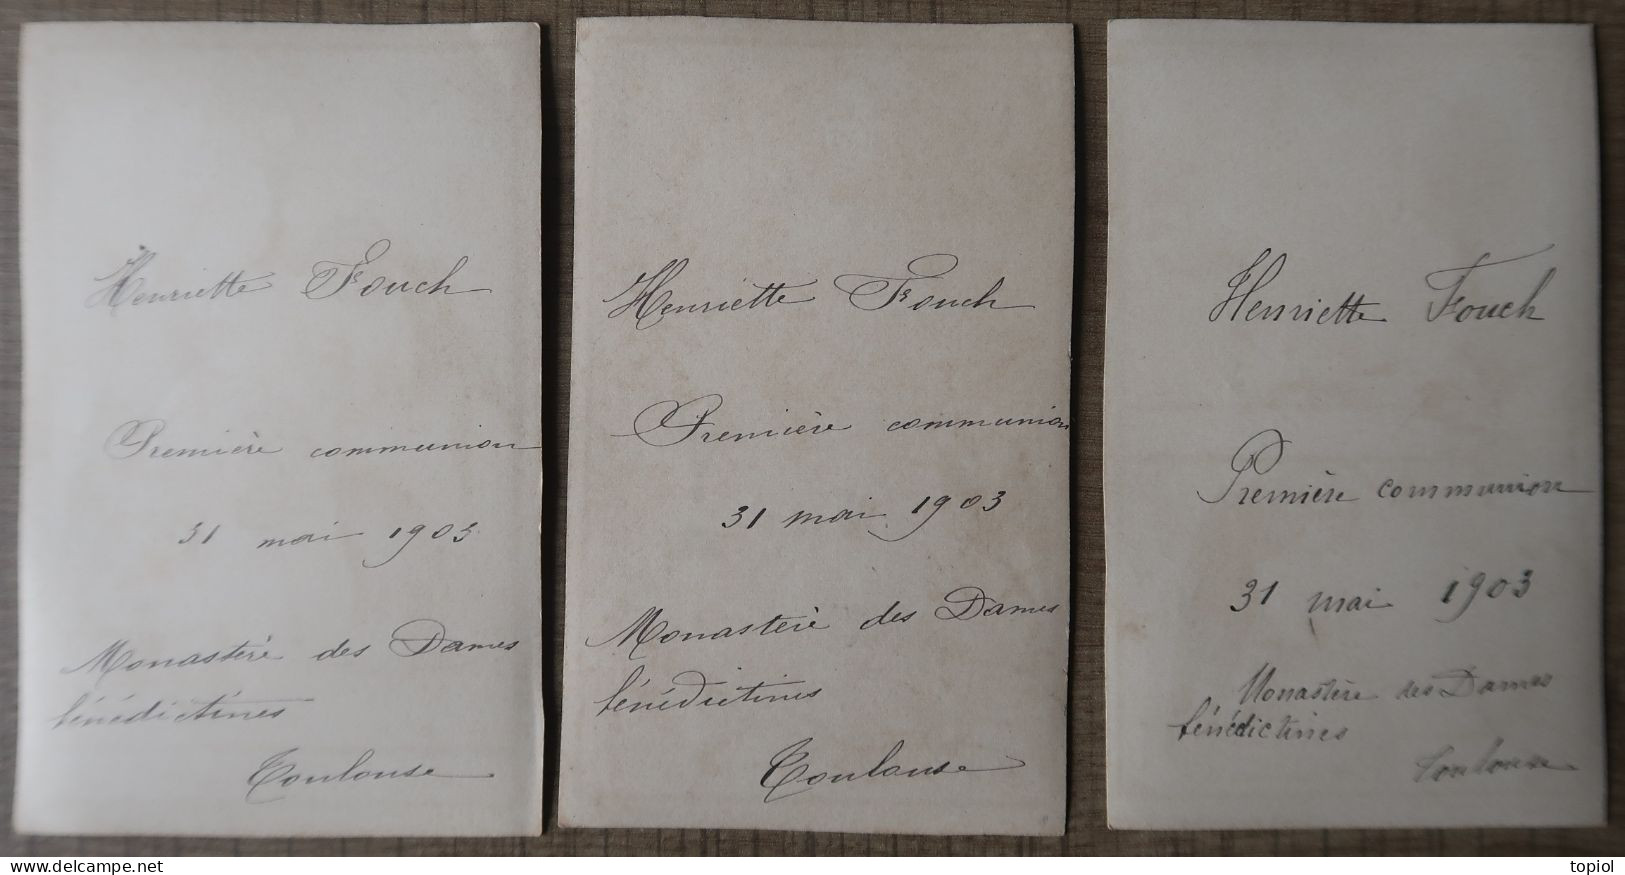 Henriette Fouch
Première communion
31 mai 1903
Monastère des Dames
bénédictines
Toulouse
Henriette Fouch
Première communion
31 mai 1903
Monastère des Dames
bénédictines
Toulouse
Henriette Fouch
Première communion
31 mai 1903
Monastère des Dames
bénédictines
Toulouse
www.delcampe.net
topiol